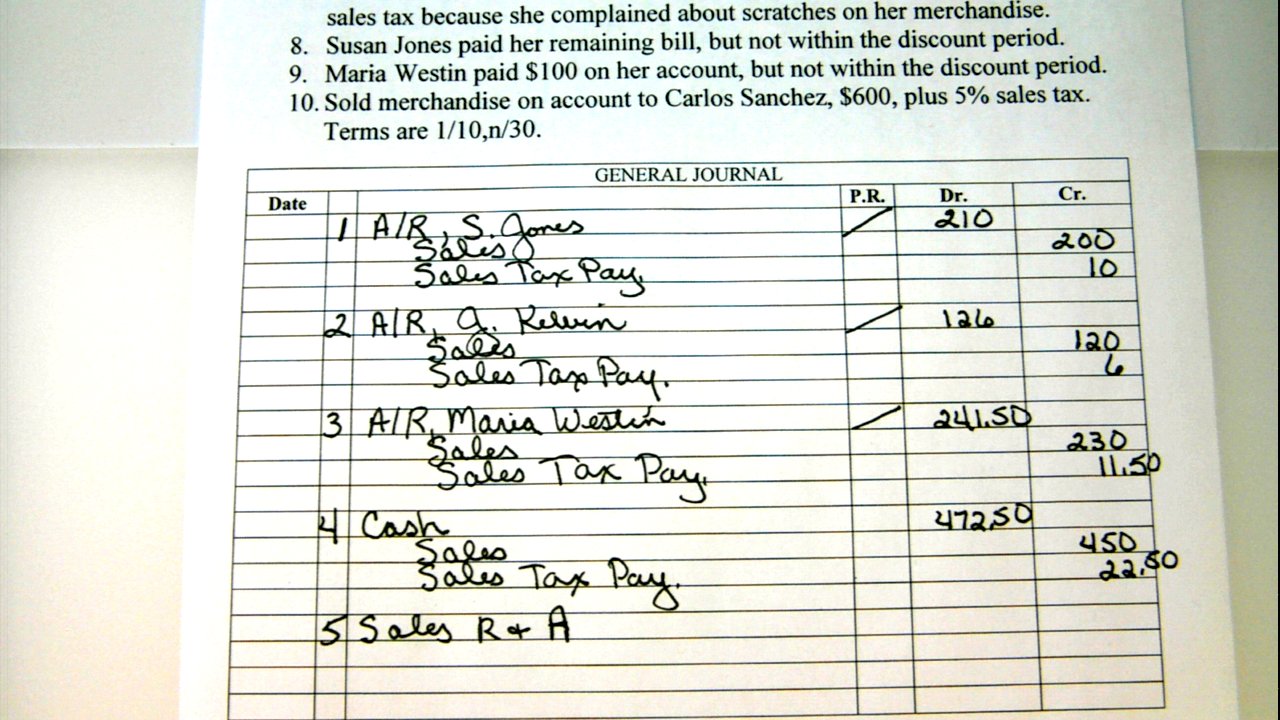 sales tax because she complained about scratches on her merchandise.
8. Susan Jones paid her remaining bill, but not within the discount period.
9. Maria Westin paid $100 on her account, but not within the discount period.
10. Sold merchandise on account to Carlos Sanchez, $600, plus 5% sales tax.
Terms are 1/10,n/30.
GENERAL JOURNAL
Date P.R. Dr. Cr.
1 A/R, S. Jones 210
Sales 200
Sales Tax Pay. 10
2 A/R, J. Kelvin 126
Sales 120
Sales Tax Pay. 6
3 A/R, Maria Westin 241.50
Sales 230
Sales Tax Pay. 11.50
4 Cash 472.50
Sales 450
Sales Tax Pay. 22.50
5 Sales R + A